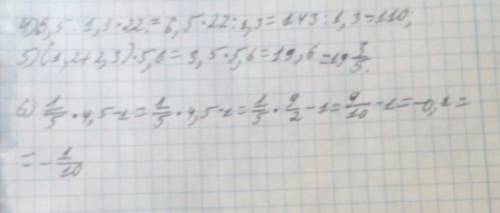 4) 6,5 : 1,3 * 22 = 6,5 * 22 : 1,3 = 143 : 1,3 = 110,
5) (1,2 + 2,3) * 5,6 = 3,5 * 5,6 = 19,6 = 19 3/5.
6) 1/5 * 4,5 - 1 = 1/5 * 4,5 - 1 = 1/5 * 9/2 - 1 = 9/10 - 1 = -0,1 =
= - 1/10